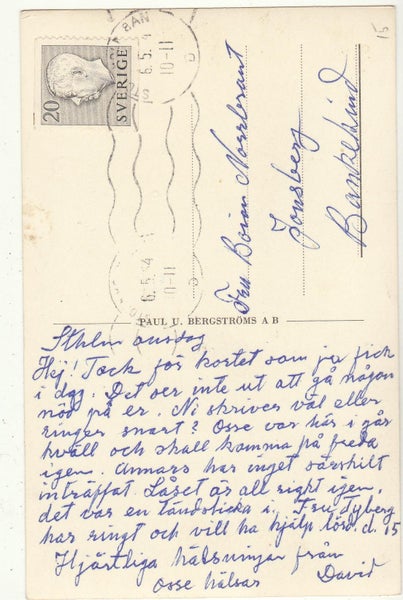 15
20
SVERIGE
BAN
6.5.54
10-11
6.5.54
10-11
Fru Börian Norrbrant
Jonsberg
Bankekind
PAUL U. BERGSTRÖMS A B
Sthlm onsdag
Hej! Tack för kortet som jag fick
i dag. Det ser inte ut att gå någon
nöd på er. Ni skriver väl eller
ringer snart? Osse var här i går
kväll och skall komma på freda
igen. Annars har inget särskilt
inträffat. Låset är all right igen,
det var en tandsticka i. Fru Dyberg
har ringt och vill ha hjälp lörd. d. 15
Hjärtliga hälsningar från
osse hälsar David